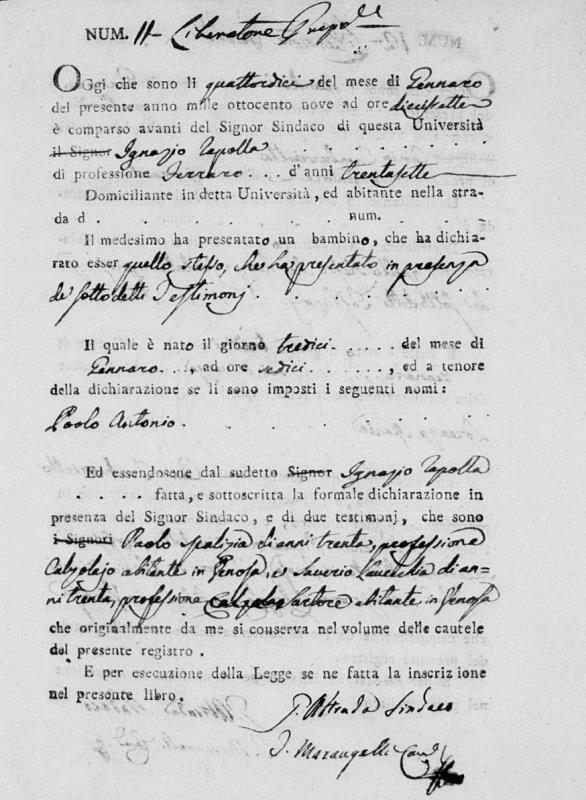 NUM. 11 - Liberatore
OGgi che sono li quattordici del mese di Gennaro
del presente anno mille ottocento nove ad ore diecisette
è comparso avanti del Signor Sindaco di questa Università
il Signor Ignazio Zapolla
di professione Ferraro . . . d'anni trentasette
Domiciliante in detta Università, ed abitante nella stra-
da d . . . . . . . num.
Il medesimo ha presentato un bambino, che ha dichia-
rato esser quello stesso, che ha presentato in presenza
de' sotto detti Testimonj . . . . .
Il quale è nato il giorno tredici . . . . . . del mese di
Gennaro . . ., ad ore sedici . . . . . . ., ed a tenore
della dichiarazione se li sono imposti i seguenti nomi:
Paolo Antonio . . . . . . .
Ed essendosene dal sudetto Signor Ignazio Zapolla
. . . . . fatta, e sottoscritta la formale dichiarazione in
presenza del Signor Sindaco, e di due testimonj, che sono
i Signori Paolo Spalizia di anni trenta, professione
Calzolajo abitante in Genosa, e Saverio di an=
ni trenta, professione Sartore abitante in Genosa
che originalmente da me si conserva nel volume delle cautele
del presente registro.
E per esecuzione della Legge se ne fatta la inscrizione
nel presente libro.
Strada Sindaco
Marangelli Canc.